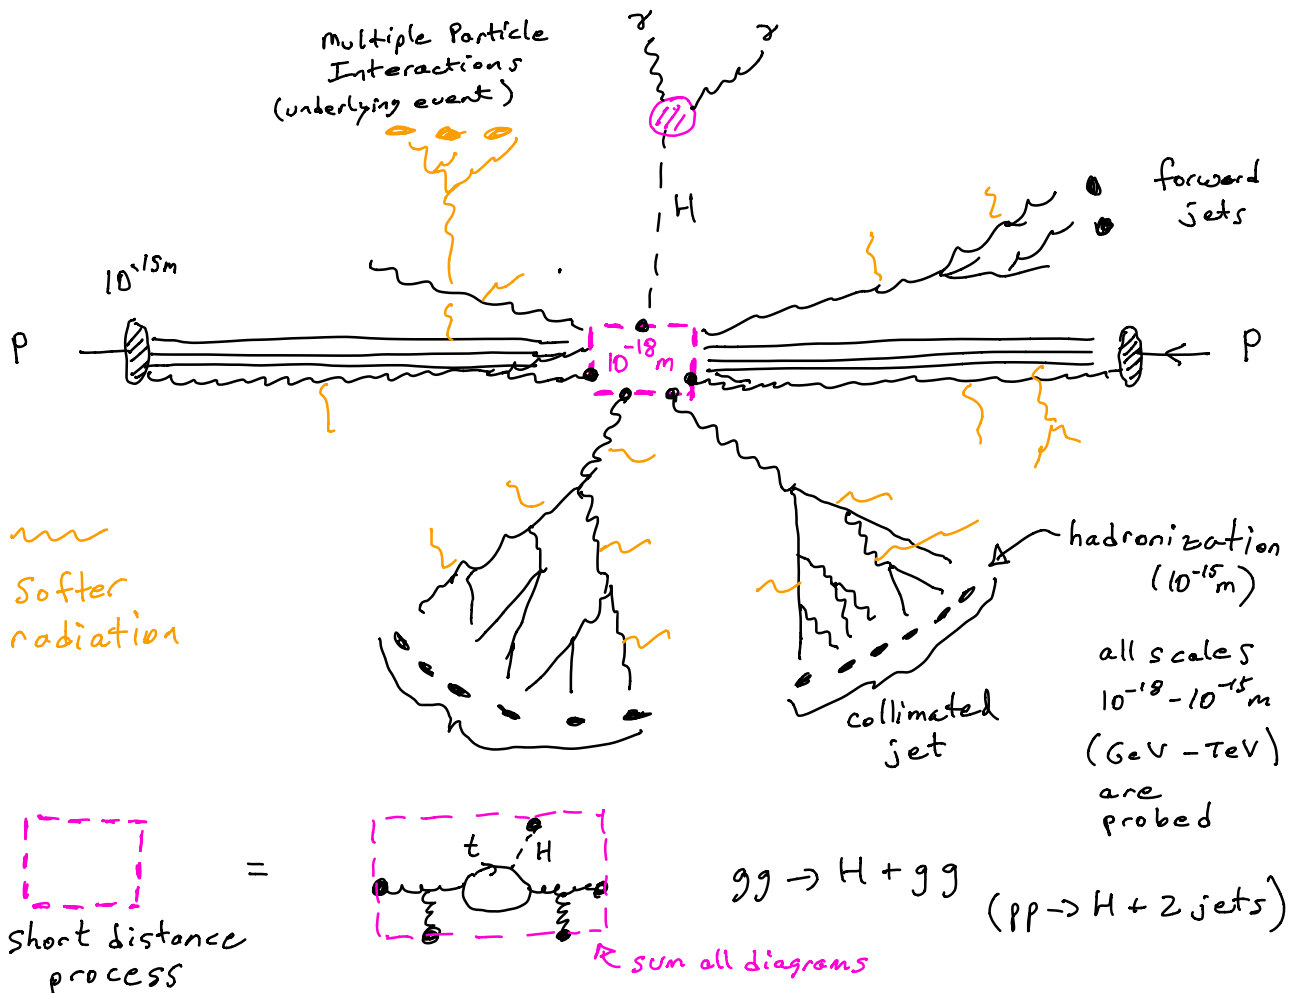 Multiple Particle
Interactions
(underlying event)
γ γ
H
forward
jets
10^-15 m
P
10^-18 m
P
softer
radiation
hadronization
(10^-15 m)
all scales
10^-18 - 10^-15 m
(GeV - TeV)
are
probed
collimated
jet
short distance
process
=
t
H
gg → H + gg
(pp → H + 2 jets)
sum all diagrams